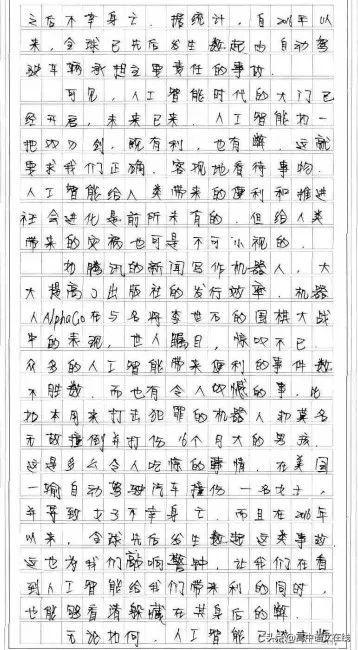 之后不幸身亡。据统计，自2016年以
来，全球已先后发生数起由自动驾
驶车辆承担主要责任的事故。
可见，人工智能时代的大门已
经开启，未来已来。人工智能如一
把双刃剑，既有利，也有弊，这就
要求我们正确、客观地看待事物。
人工智能给人类带来的便利和推进
社会进化是前所未有的，但给人类
带来的灾祸也可是不可小视的。
如腾讯的新闻写作机器人，大
大提高了出版社的发行效率。机器
人AlphaGo在与名将李世石的围棋大战
中的表现，世人瞩目，惊叹不已。
众多的人工智能带来便利的事件数
不胜数。而也有令人叹憾的事，比
如本用来打击犯罪的机器人却莫名
无故撞倒并打伤16个月大的男孩，
这是多么令人吃惊的事情。在美国
一辆自动驾驶汽车撞伤一名女士，
并导致女子不幸身亡。而且在2016年
以来，全球先后发生数起这类事故
这也为我们敲响警钟，让我们在看
到人工智能给我们带来利的同时，
也能够看清躲藏在其身后的弊。
无论如何，人工智能已
头条@高中语文在线